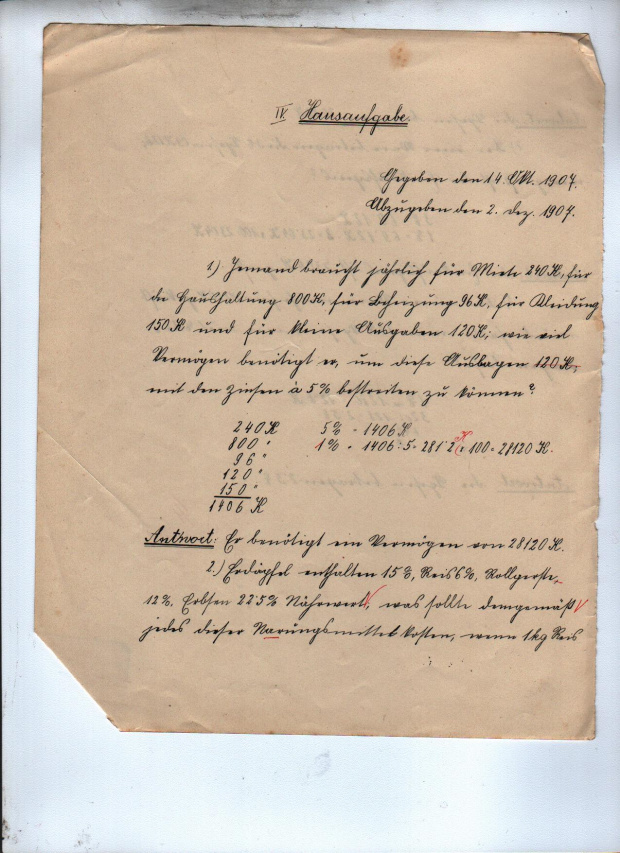 IV. Hausaufgabe.
Gegeben den 14. Okt. 1907.
Abzugeben den 2. Dez. 1907.
1.) Jemand braucht jährlich für Miete 240 K, für
die Haushaltung 800 K, für Beheizung 96 K, für Kleidung
150 K und für kleine Ausgaben 120 K; wie viel
Vermögen benötigt er, um diese Auslagen 120 K,
mit den Zinsen à 5% bestreiten zu können?
240 K 5% - 1406 K
800 " 1% - 1406 : 5 = 281·2 K · 100 = 28120 K.
96 "
120 "
150 "
1406 K
Antwort: Er benötigt ein Vermögen von 28120 K.
2.) Erdäpfel enthalten 15%, Reis 6%, Rollgerste
12%, Erbsen 22·5% Nährwert, was sollte demgemäß
jedes dieser Narungsmittel kosten, wenn 1 kg Reis